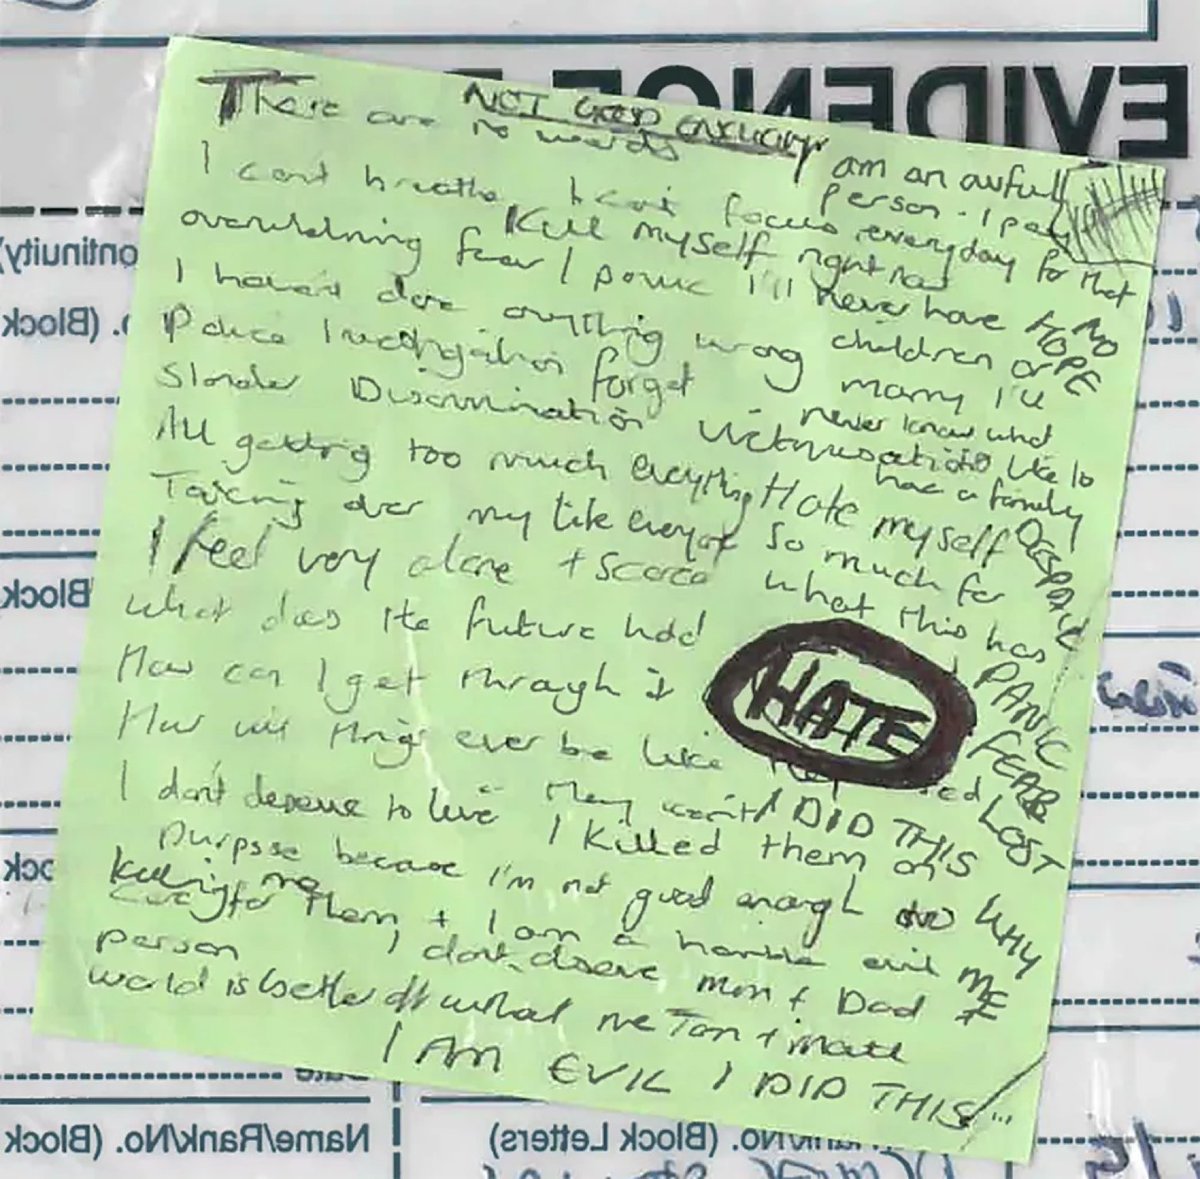 EVIDENCE
There are no words
NOT GOOD ENOUGH
I am an awful
person - I pay
everyday for that
I can't breathe I can't focus
Kill myself right now
overwhelming fear / panic I'll never have
NO HOPE
children or
I haven't done anything wrong
marry I'll
Police Investigation forget
never know what
Slander Discrimination Victimisation
like to
have a family
All getting too much everything
Hate myself
DESPAIR
Taking over my life everyone
so much for
I feel very alone + scared
what this has
What does the future hold
PANIC
How can I get through it
HATE
FEAR
How will things ever be like
LOST
I don't deserve to live They won't I DID THIS
I killed them on
WHY
purpose because I'm not good enough to
ME
killing me
care for them + I am a horrible evil
person I don't deserve Mum + Dad
world is better off without me Tom + Matt
I AM EVIL I DID THIS
(Block
Name/Rank/No. (Block
No. (Block Letters)
Date